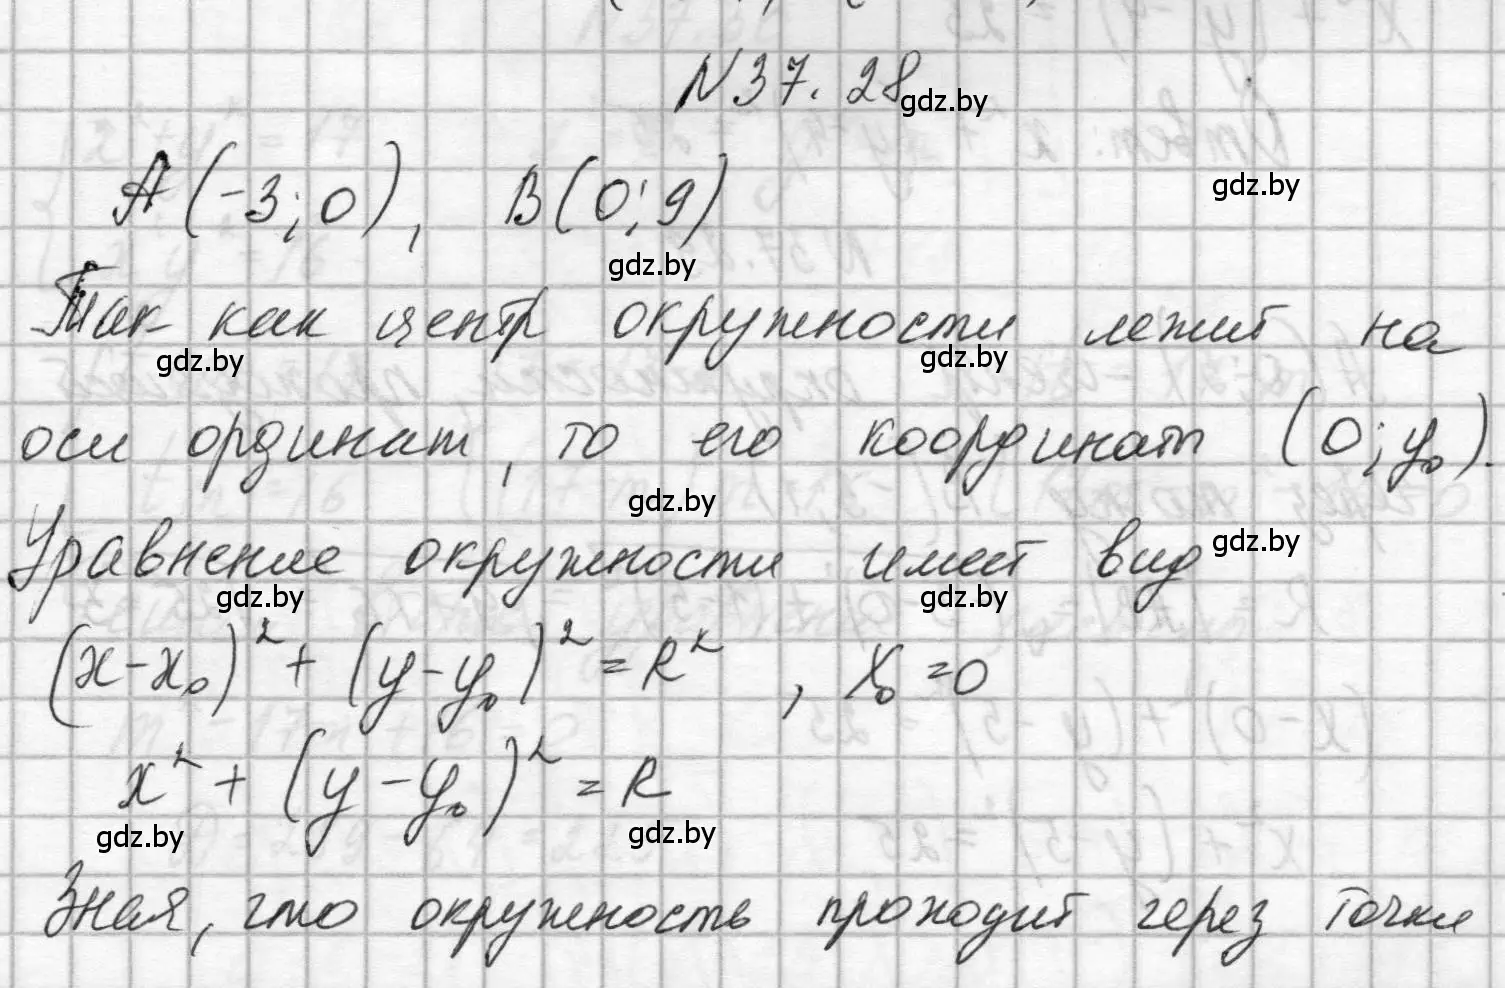 N37.28
gdz.by
A(-3;0), B(0;9)
gdz.by
gdz.by
Так как центр окружности лежит на
gdz.by
gdz.by
оси ординат, то его координаты (0; y₀).
gdz.by
Уравнение окружности имеет вид
gdz.by
gdz.by
gdz.by
(x-x₀)² + (y-y₀)² = R², x₀=0
x² + (y-y₀)² = R
gdz.by
gdz.by
Зная, что окружность проходит через точки